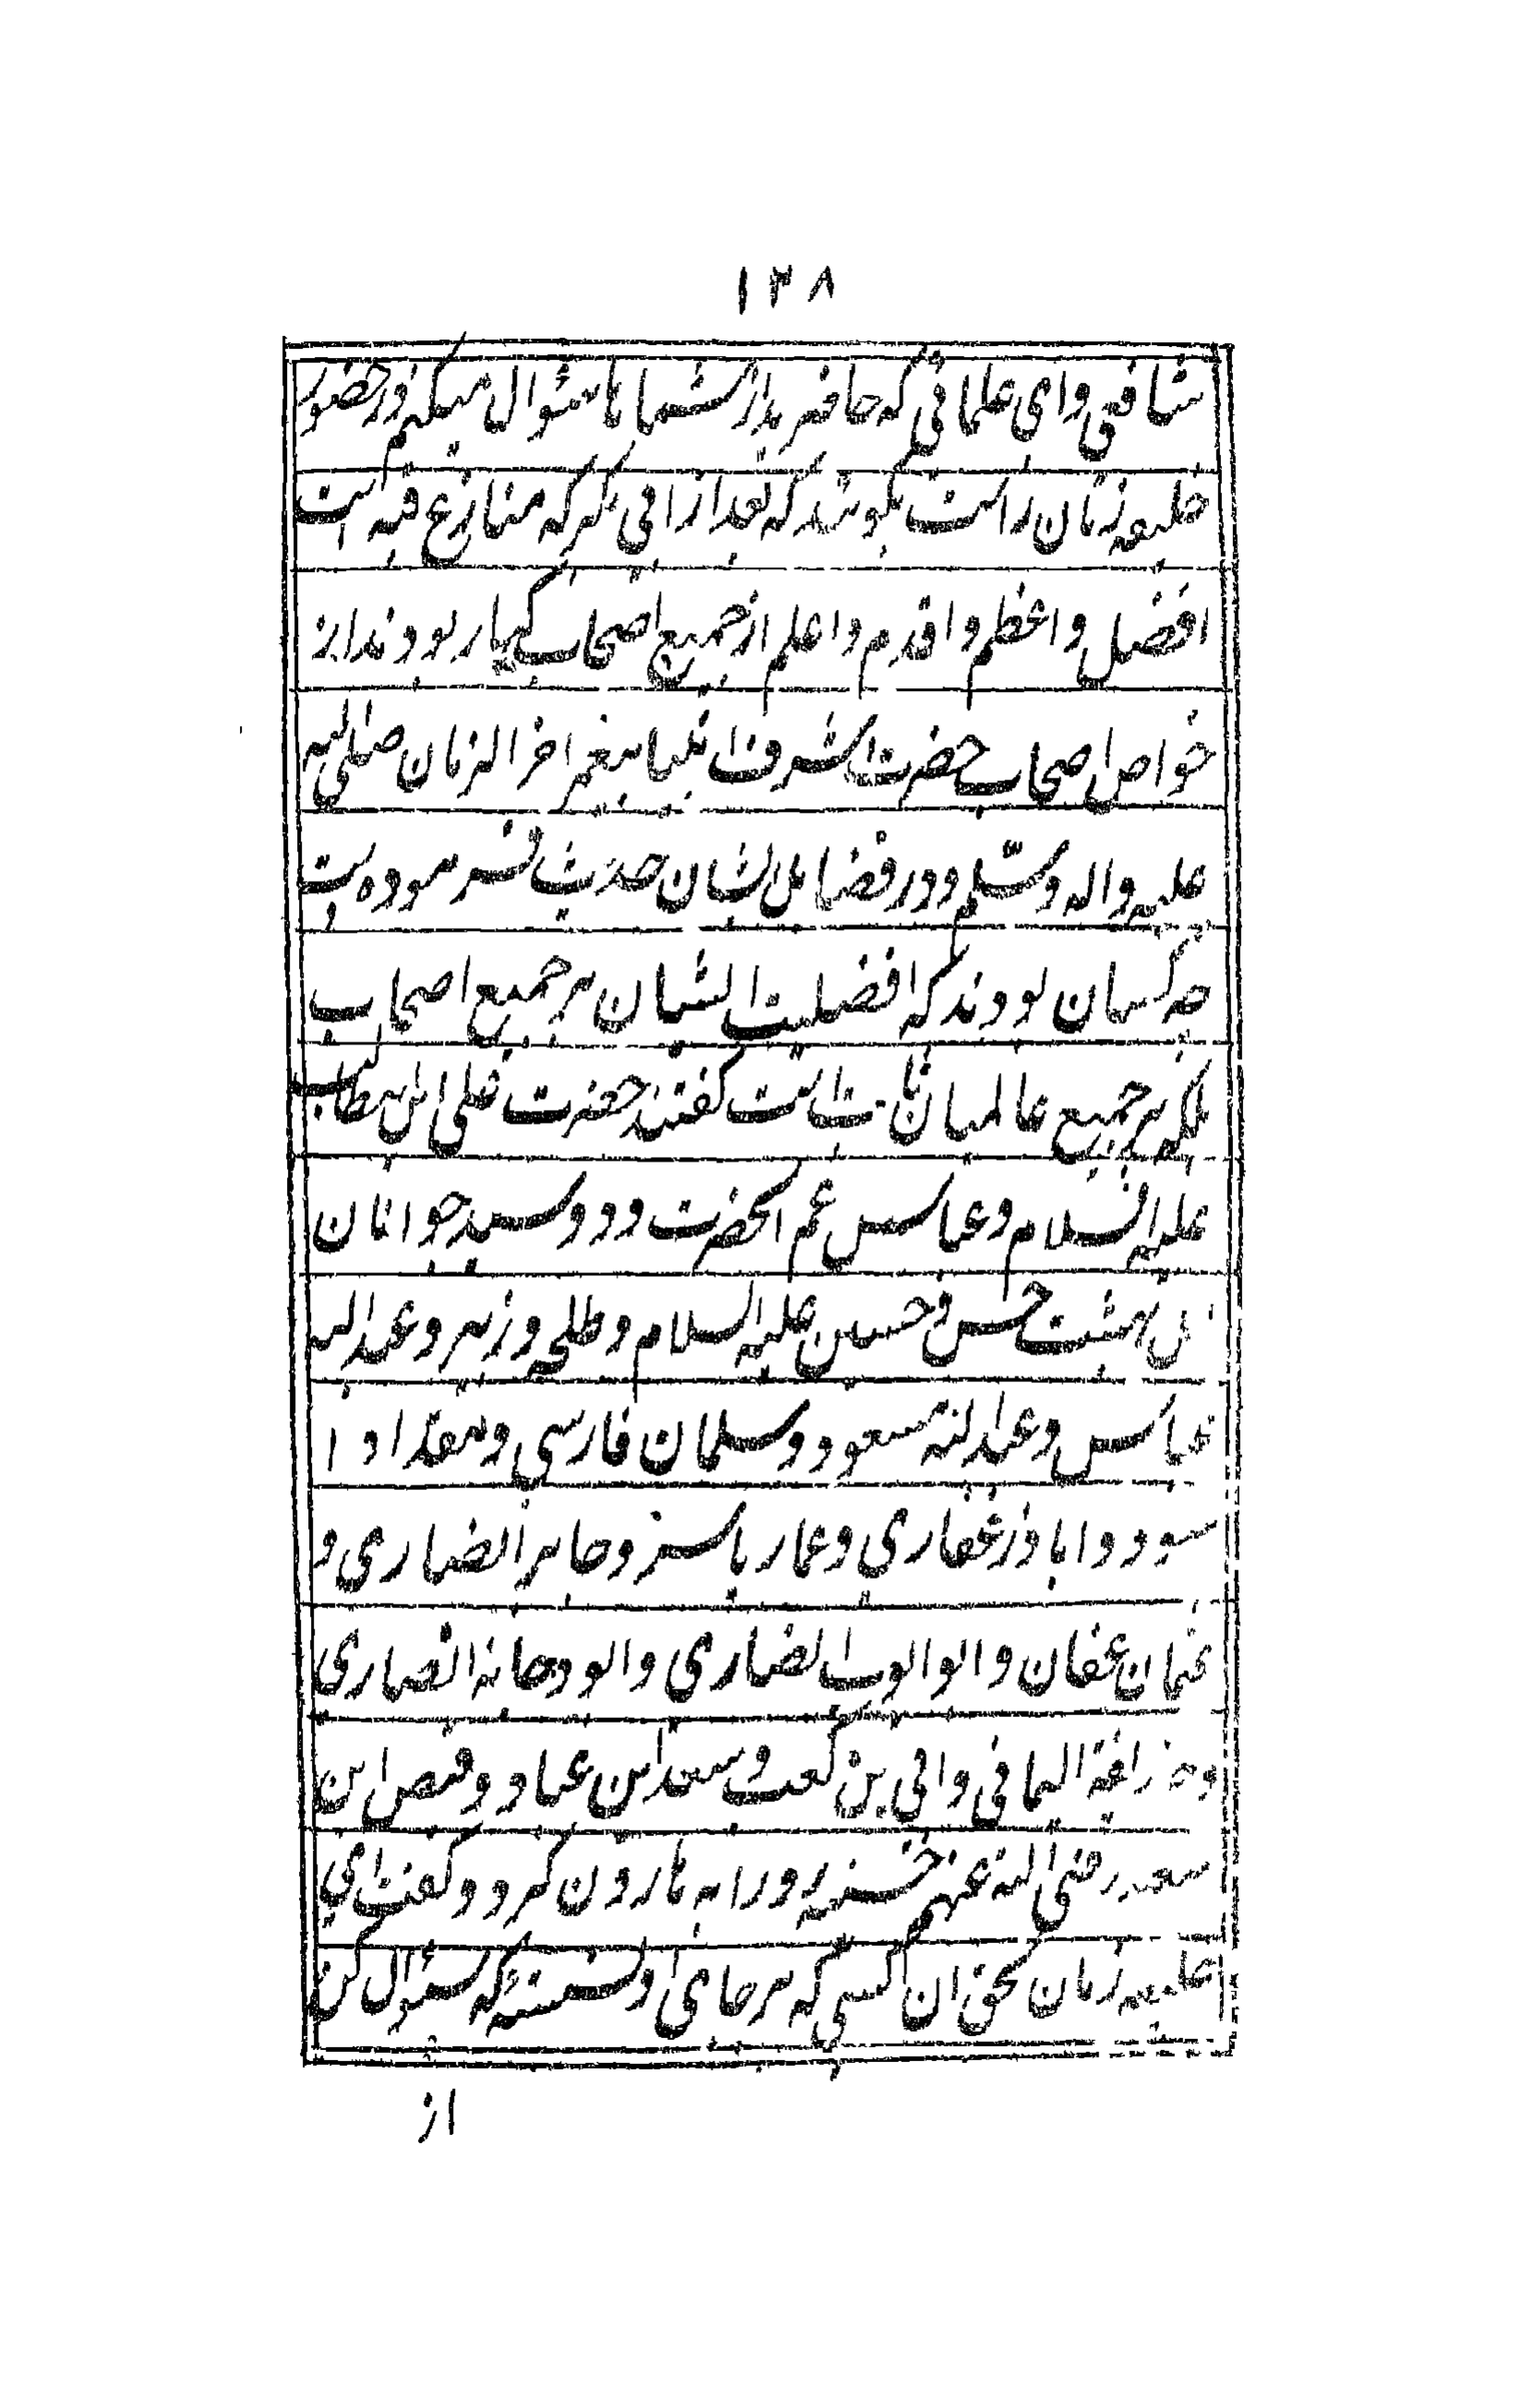 ۱۳۸
شافعی و ای علمائی که حاضرید از شما یا سئوال میکنم در حضور
خلیفه زمان راست بگوئید که بعد از ابی بکر که منازع فیه است
افضل و اعظم و اقدم و اعلم از جمیع اصحاب کبار بودند از
خواص اصحاب حضرت اشرف انبیا پیغمبر اخر الزمان صلی الله
علیه واله وسلم و در فضایل ایشان حدیث فرموده است
چه کسان بودند که افضلیت ایشان بر جمیع اصحاب
بلکه بر جمیع عالمیان ثابت است گفتند حضرت علی ابن ابیطالب
علیه السلام و عباس عم انحضرت و دو سید جوانان
اهل بهشت حسن و حسین علیه السلام و طلحه و زبیر و عبد الله
عباس و عبد الله مسعود و سلمان فارسی و مقداد ا
سود و اباذر غفاری و عمار یاسر و جابر انصاری و
عثمان عفان و ابو ایوب انصاری و ابو دجانه انصاری
و حذیفة الیمانی و ابی بن کعب و سعد ابن عباد و قیص ابن
سعد رضی الله عنهم حسنیه رو را به هارون کرد و گفت ای
خلیفه زمان بحق ان کسی که بر جای او نشسته که سئوال کن
از